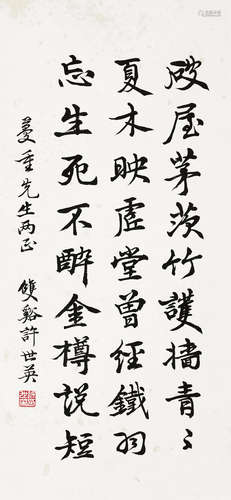 破屋茅茨竹護牆青々
夏木映虛堂曾經鐵羽
忘生死不醉金樽說短
重先生兩正 雙谿許世英